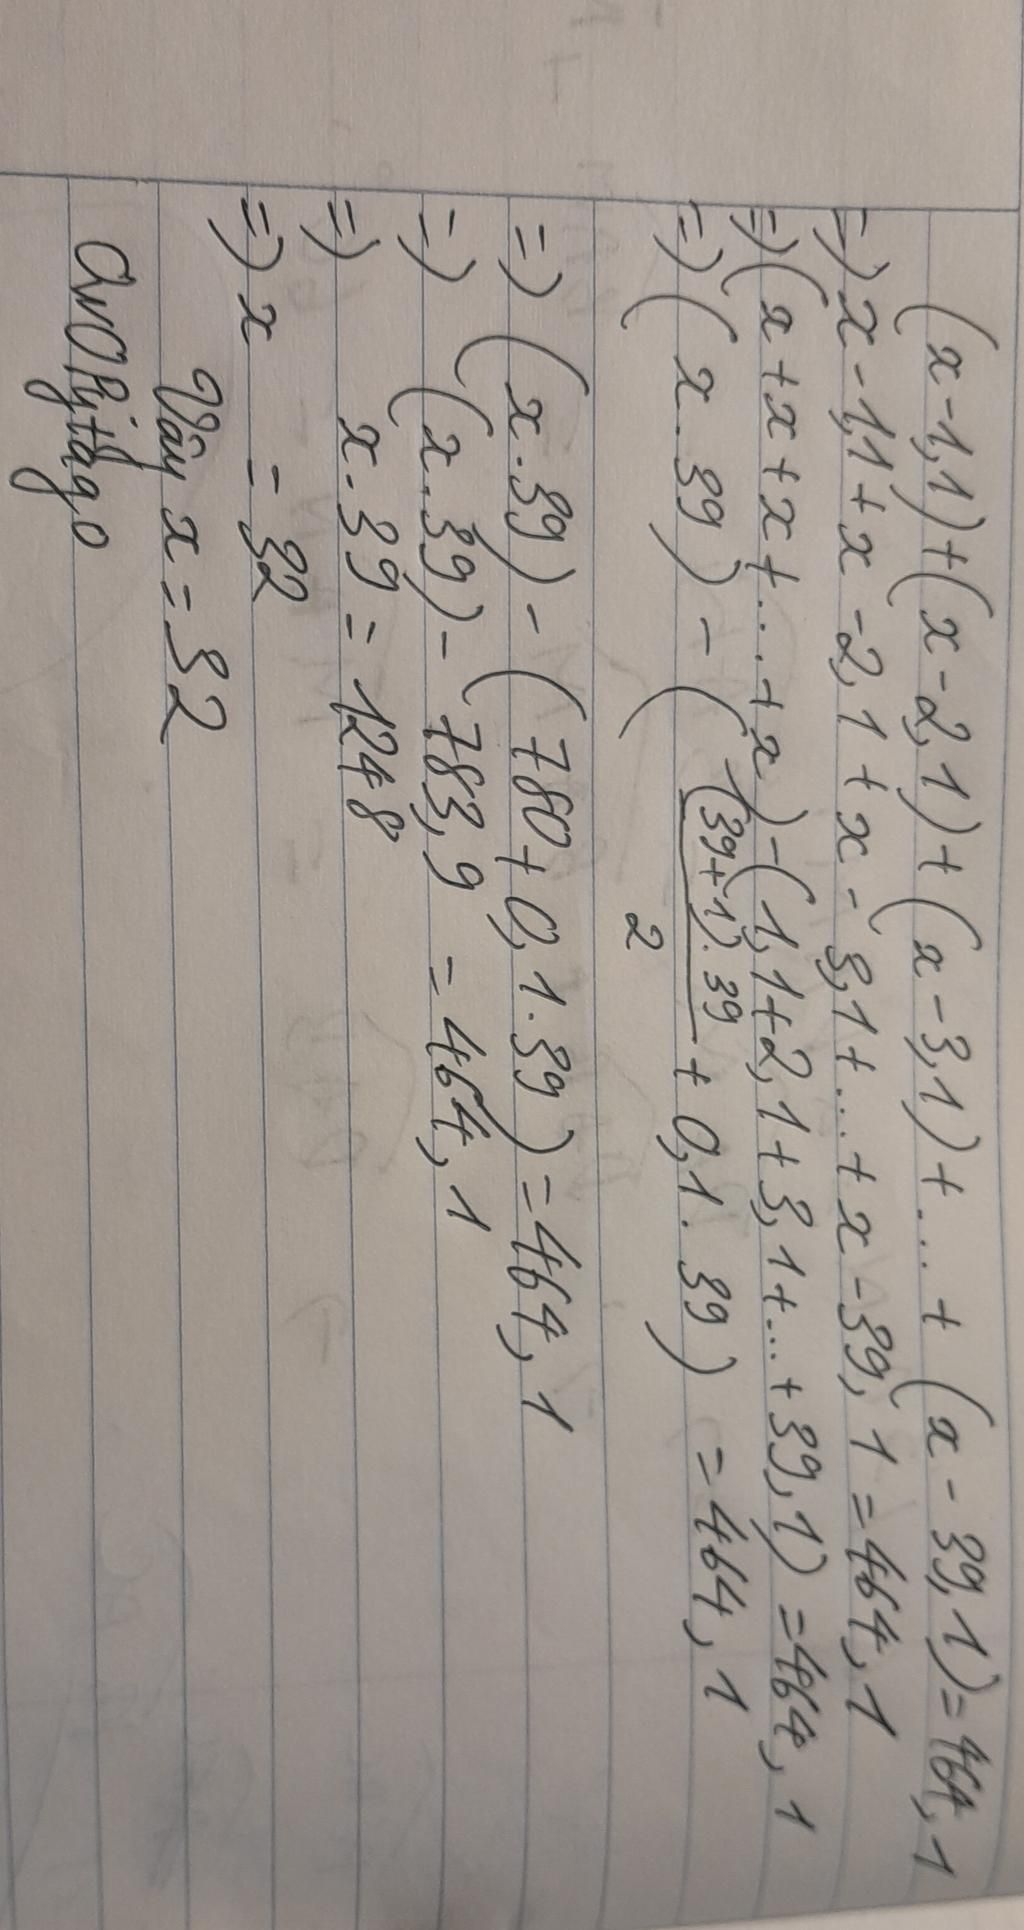 (x-1,1)+(x-2,1)+(x-3,1)+...+(x-39,1)=464,1
=) x-1,1+x-2,1+x-3,1+...+x-39,1=464,1
=) (x+x+x+...+x)-(1,1+2,1+3,1+...+39,1)=464,1
=) (x.39)-((39+1).39/2+0,1.39)=464,1
=) (x.39)-(780+0,1.39)=464,1
=) (x.39)-783,9=464,1
=) x.39=1248
=) x=32
Vây x=32